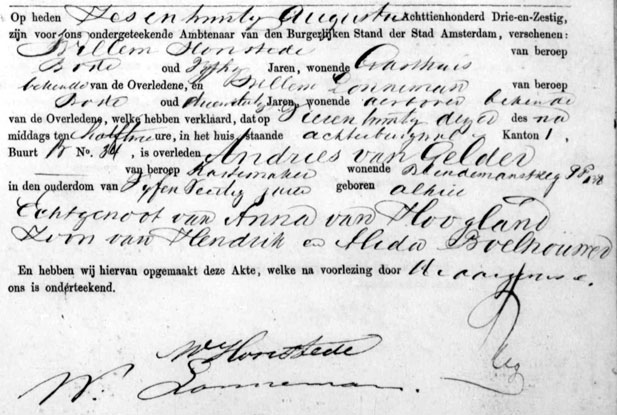 Op heden Zesentwintig Augustus Achttienhonderd Drie-en-Zestig,
zijn voor ons ondergeteekende Ambtenaar van den Burgerlijken Stand der Stad Amsterdam, verschenen:
Willem Honstede van beroep
Bode oud Vyftig Jaren, wonende Gasthuis
bekende van de Overledene, en Willem Lonneman van beroep
Bode oud Jaren, wonende bekende
van de Overledene, welke hebben verklaard, dat op dezer des na
middags ten ure, in het huis, staande achterburgwal Kanton 1.
Buurt No. 34, is overleden Andries van Gelder
van beroep wonende
in den ouderdom van jaren geboren alhier
Echtgenoot van Anna van Hoogland
Zoon van Hendrik en Alida Boelhouwer
En hebben wij hiervan opgemaakt deze Akte, welke na voorlezing door
ons is onderteekend.
W Honstede
W. Lonneman.